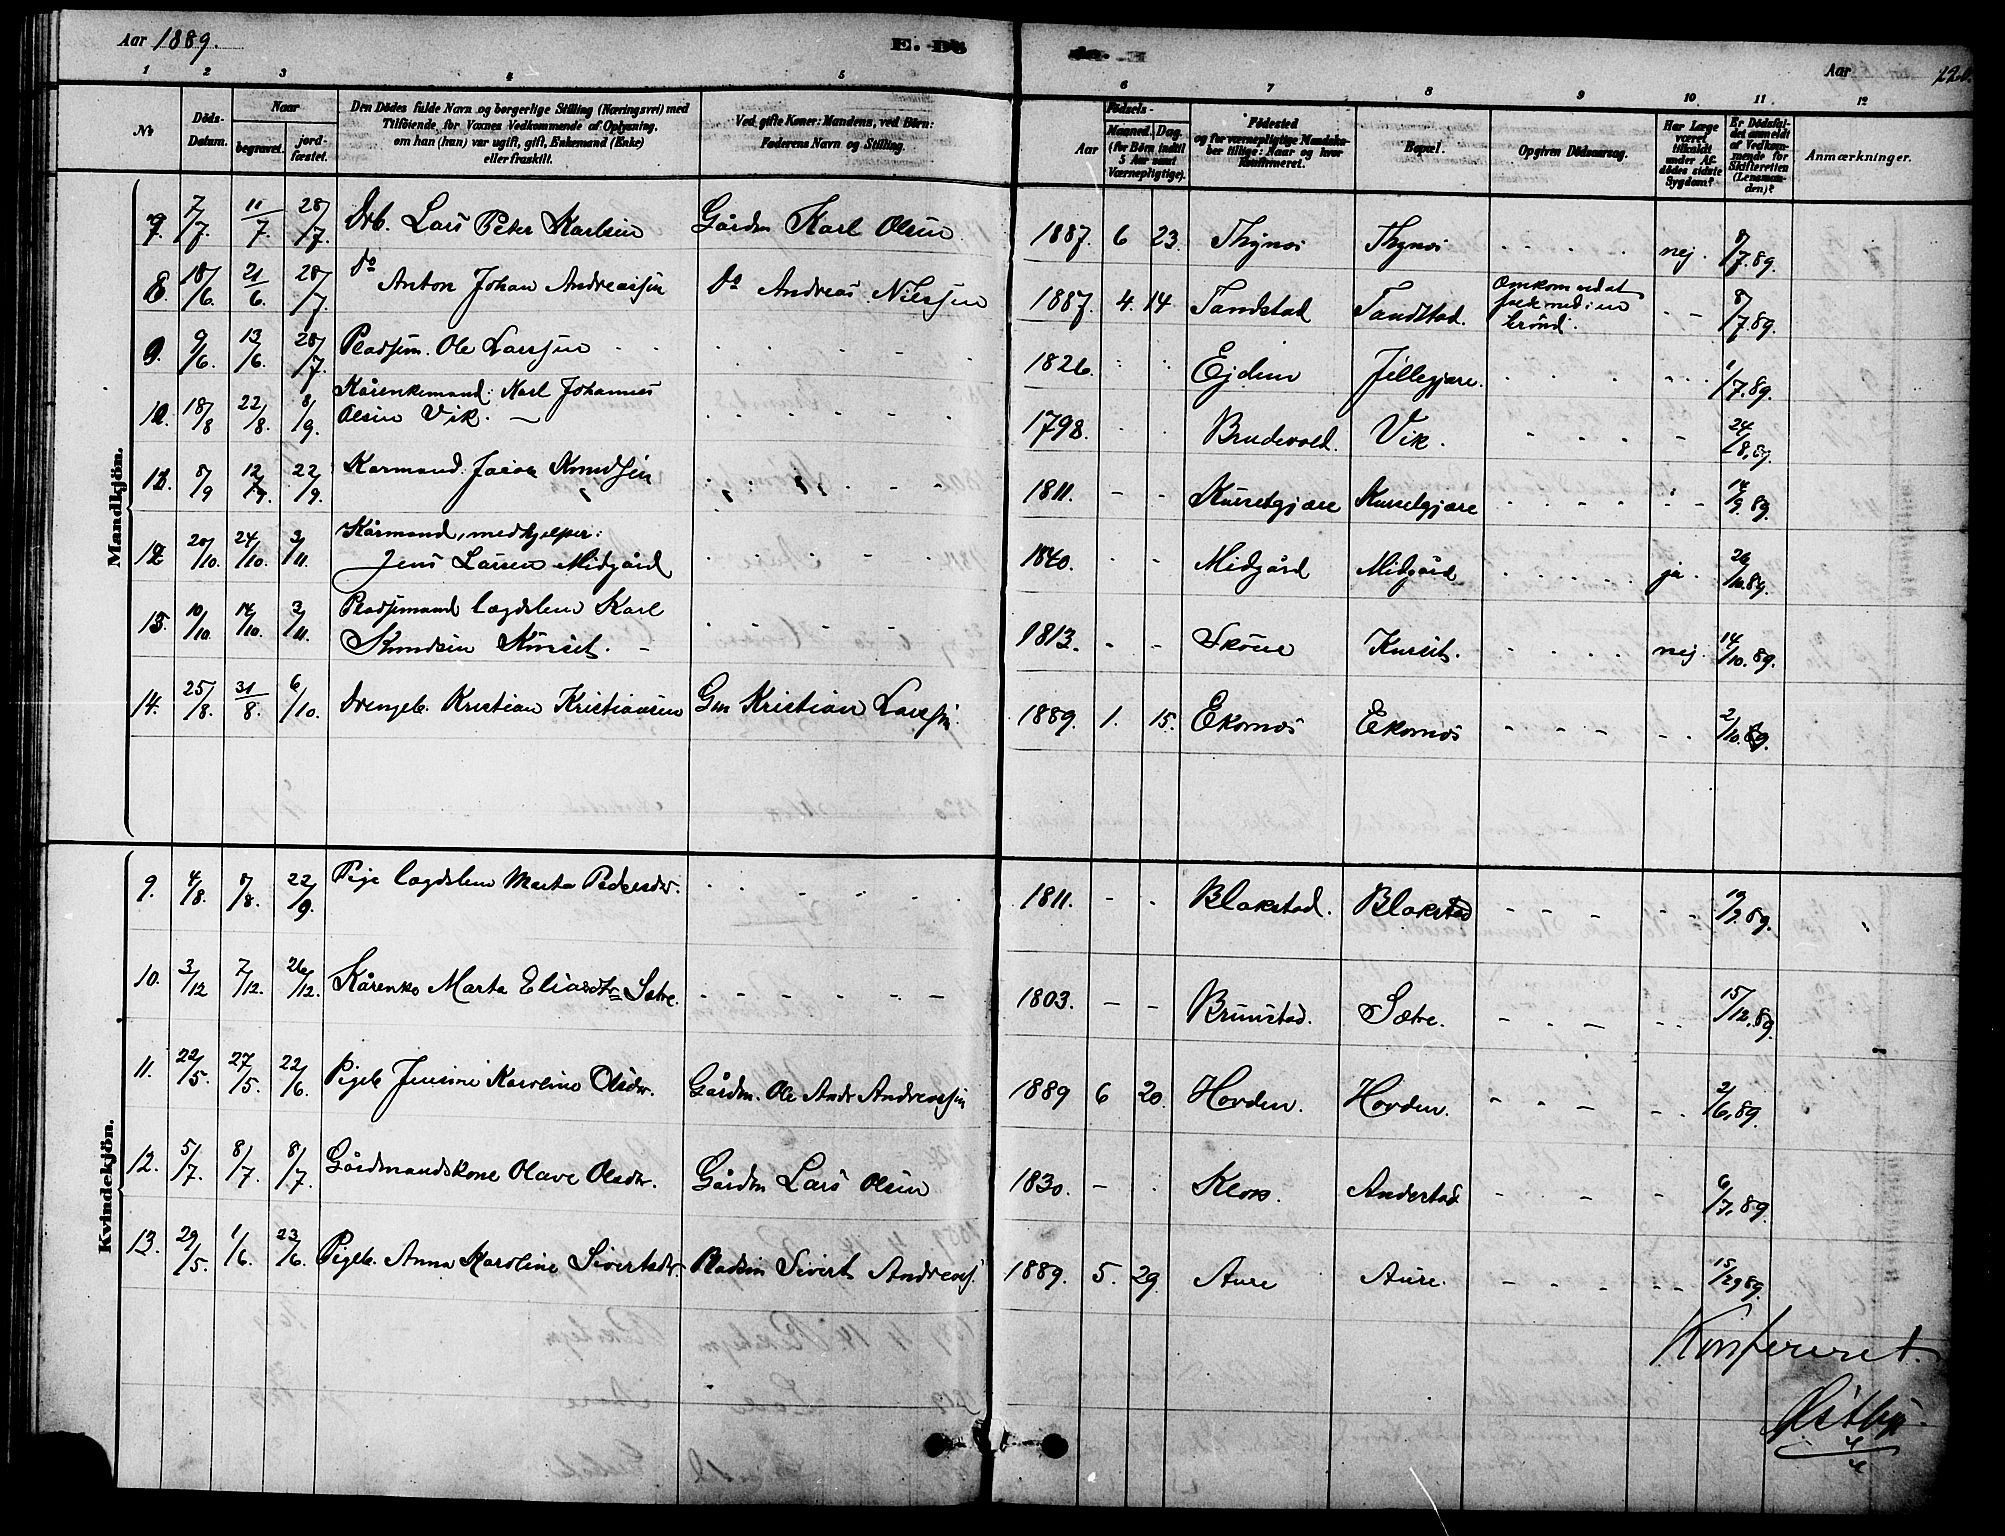 Aar 1889.
E. Dö
Aar
1 2 3 4 5 6 7 8 9 10 11 12
No
Döds-Datum.
Naar
begravet.
jord-fæstet.
Den Dödes fulde Navn og borgerlige Stilling (Næringsvei) med
Tilföiende, for Voxnes Vedkommende af Oplysning,
om han (hun) var ugift, gift, Enkemand (Enke)
eller fraskilt.
Ved gifte Koner: Mandens, ved Börn:
Faderens Navn og Stilling.
Födsels-
Aar
Maaned. Dag.
(for Börn indtil
5 Aar samt
Værnepligtige).
Födested
og for værnepligtige Mandska-
ber tillige: Naar og hvor
Konfirmeret.
Bopæl.
Opgiven Dödsaarsag.
Har Læge
været
tilkaldt
under Af-
dödes sidste
Sygdom?
Er Dödsfal-
det anmeldt
af Vedkom-
mende for
Skifteretten
(Lensman-
den)?
Anmærkninger.
Mandkjön.
7. 7/7. 11/7. 28/7. Drb. Lars Peter Karlsen Gårdm Karl Olsen 1887. 6 23. Thynæs Thynæs nej. 8/7.89.
8. 18/6. 21/6. 28/7. Do Anton Johan Andreassen Do Andreas Nilssen 1887. 4. 14 Tandstad Tandstad. Omkom ved at
falde ned i en
brönd. 8/7.89.
9. 9/6. 13/6. 28/7. Pladsm. Ole Larssen 1826. Ejdem Jillegjære. 1/7.89.
10. 18/8 22/8. 8/9. Kårenkemand: Karl Johannes
Olsen Vik. 1798. Brudevold. Vik. 24/8.89.
11. 8/9 12/9. 22/9. Karmand. Jacob Knudsen 1811. Kursetgjære Kursetgjære 14/9.89.
12. 20/10. 24/10. 3/11. Kårmand, medhjelper:
Jens Larsen Midgård 1840. Midgård Midgård ja. 26/10.89.
13. 10/10. 14/10. 3/11. Pladsemand lægdslem Karl
Knudsen Kurset. 1813. Skåue Kurset. nej. 14/10.89.
14. 25/8. 31/8. 6/10. Drengeb. Kristian Kristiansen Gm Kristian Larssen. 1889. 1. 15. Ekornæs Ekornæs 2/10.89.
Kvindekjön.
9. 4/8. 8/8. 22/9. Pige lægdslem Marta Pedersdtr. 1811. Blakstad. Blakstad 89.
10. 3/12 7/12. 26/12. Kårenke Marta Eliasdtr Sætre. 1803. Brunstad. Sætre. 15/12.89.
11. 22/5. 27/5. 22/6. Pigeb Jensine Karoline Olsdtr. Gårdm. Ole Andr Andreassen 1889 6 20. Hovden. Hovden. 2/6.89.
12. 5/7. 8/7. 8/7. Gårdmandskone Olave Olsdtr. Gårdm Lars Olsen 1830. Klok Anderstad 6/7.89.
13. 29/5. 1/6. 23/6. Pigeb. Anna Karoline Sivertsdtr. Pladsm Sivert Andreass. 1889. 5. 29. Aure Aure. 89.
Konfereret.
Østbye